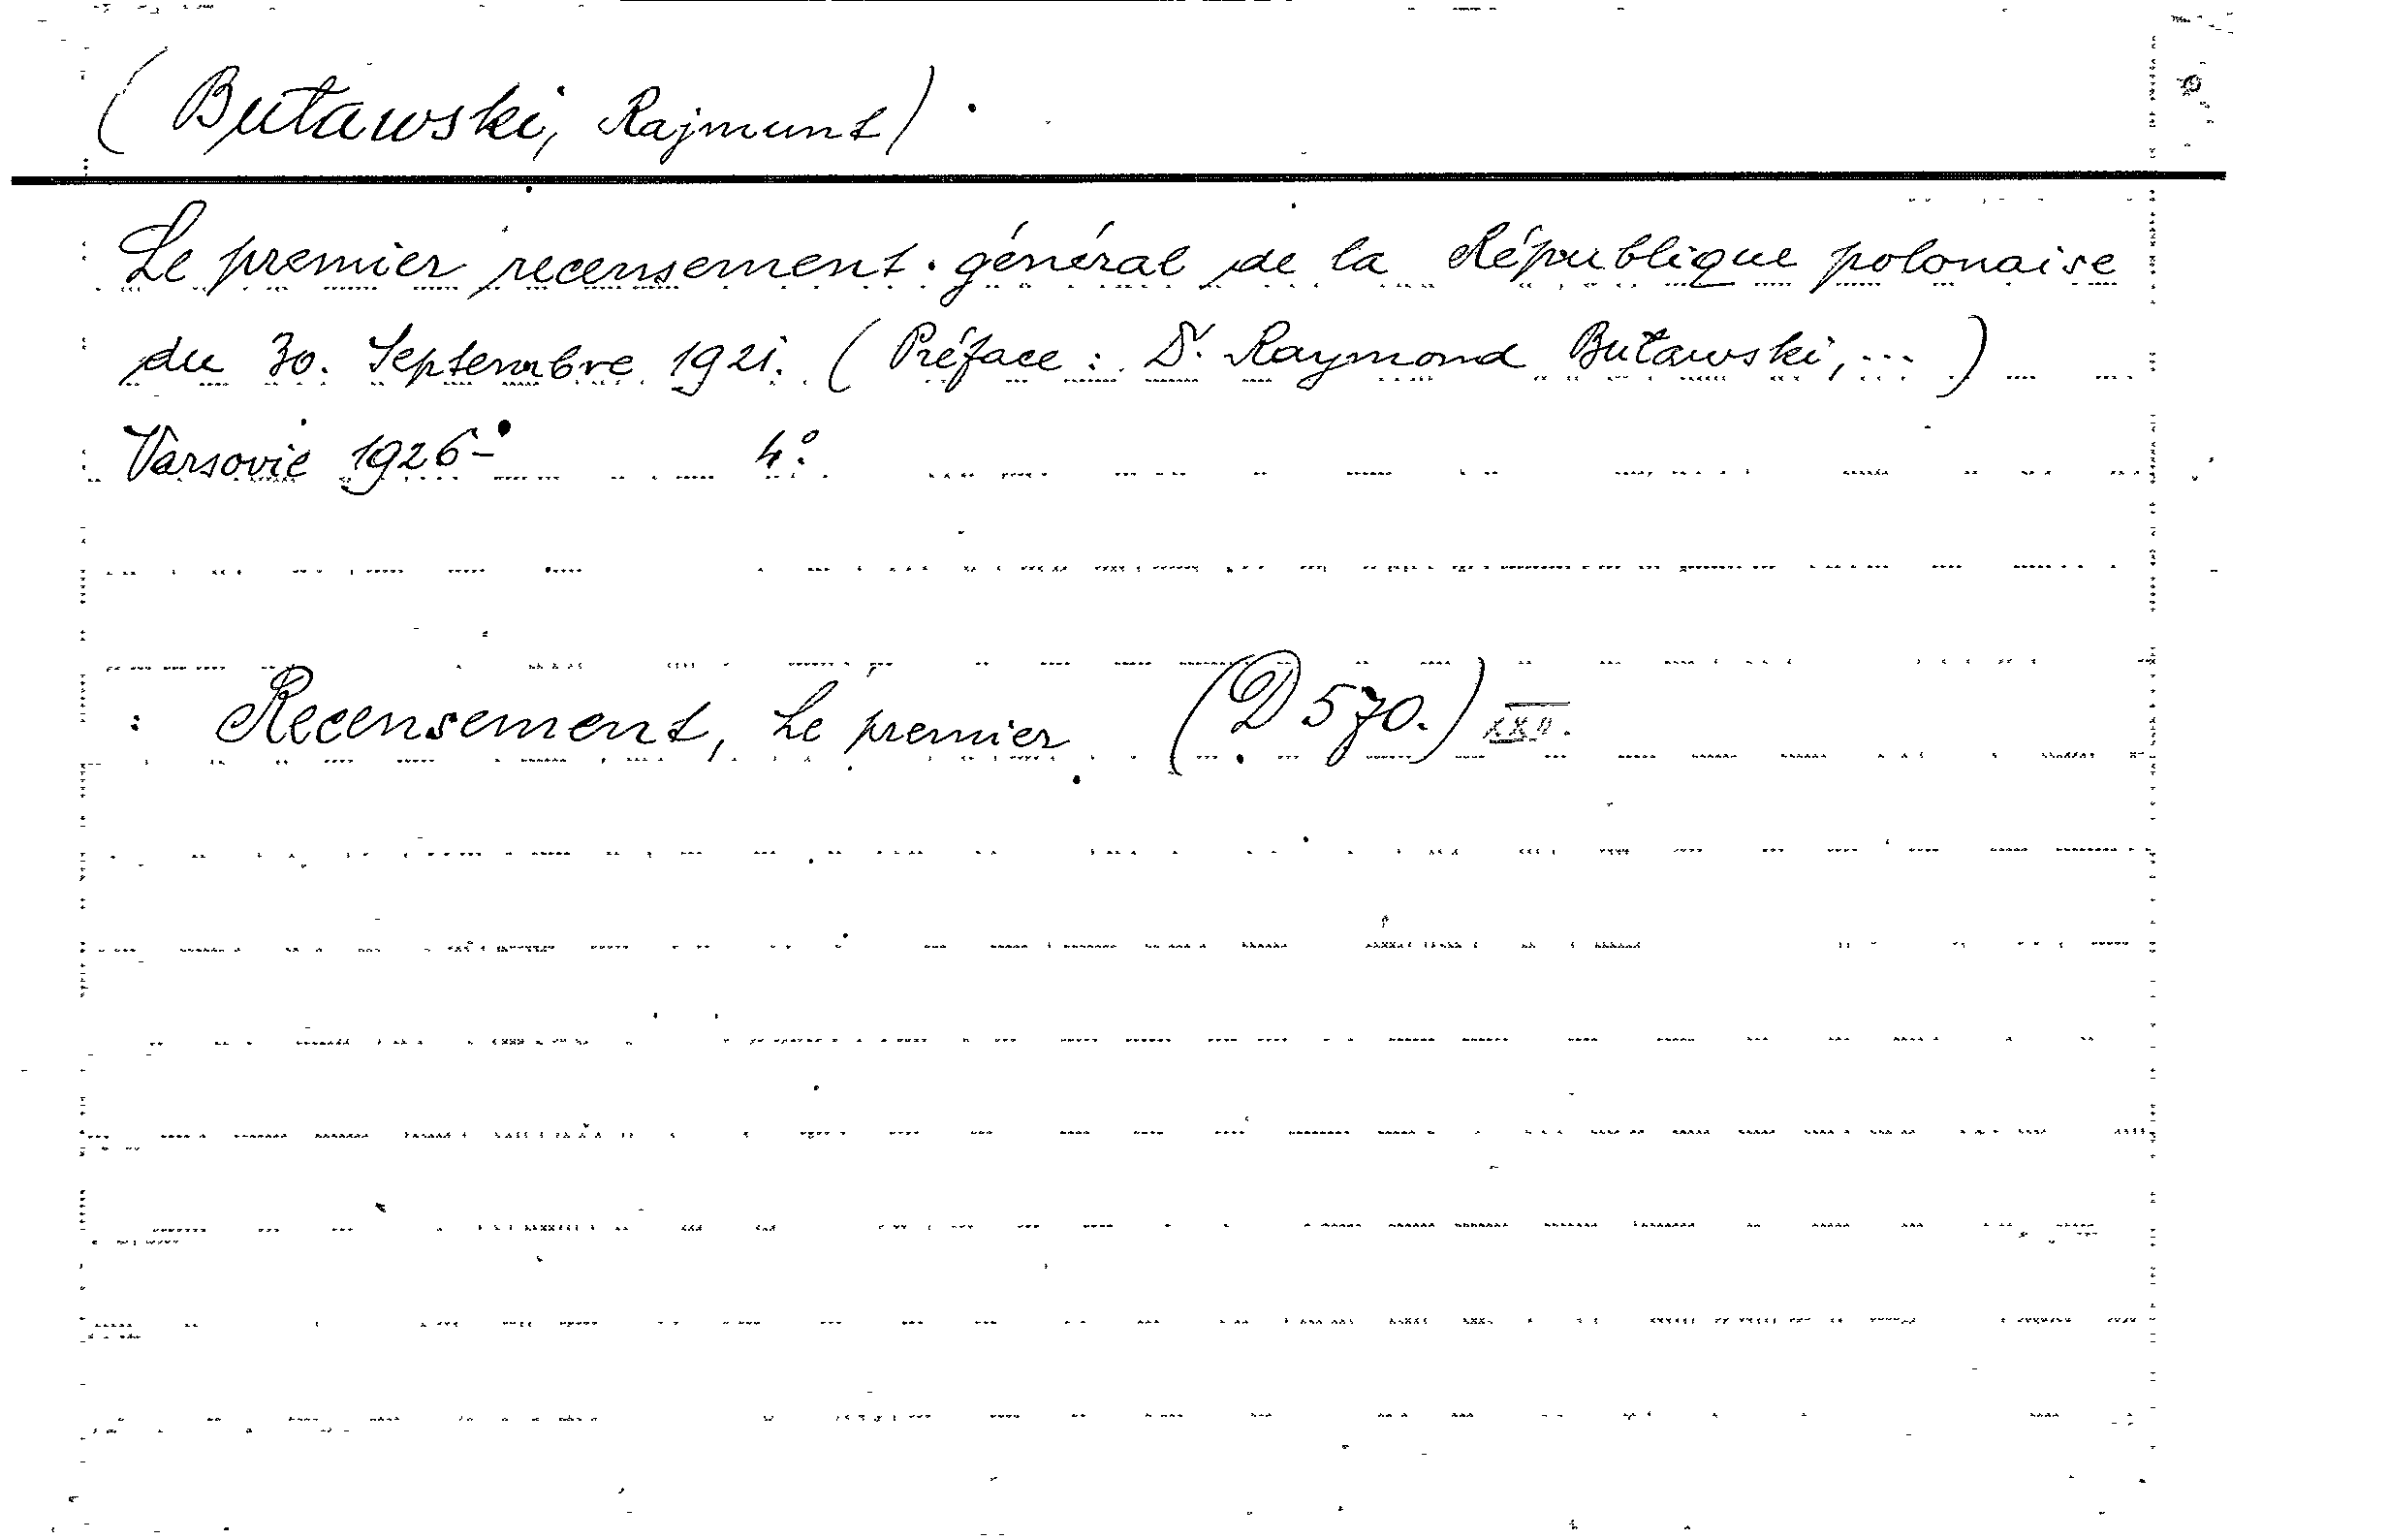 (Buławski, Rajmunt).
Le premier recensement général de la République polonaise
du 30. Septembre 1921. (Préface: Dr. Raymond Buławski, ...)
Varsovie 1926- 4°.
: Recensement, Le premier (D 570.) XXII.